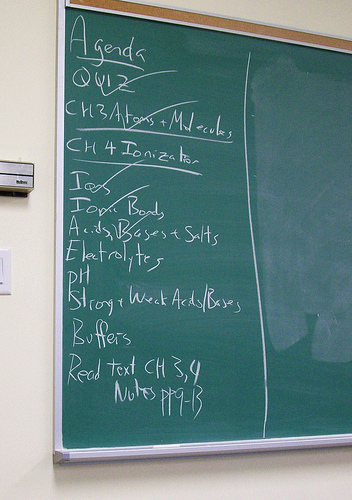 Agenda
QUIZ
CH 3 Atoms + Molecules
CH 4 Ionization
Ions
Ionic Bonds
Acids, Bases + Salts
Electrolytes
pH
Strong + Weak Acids/Bases
Buffers
Read text CH 3,4
Notes pp 9-13